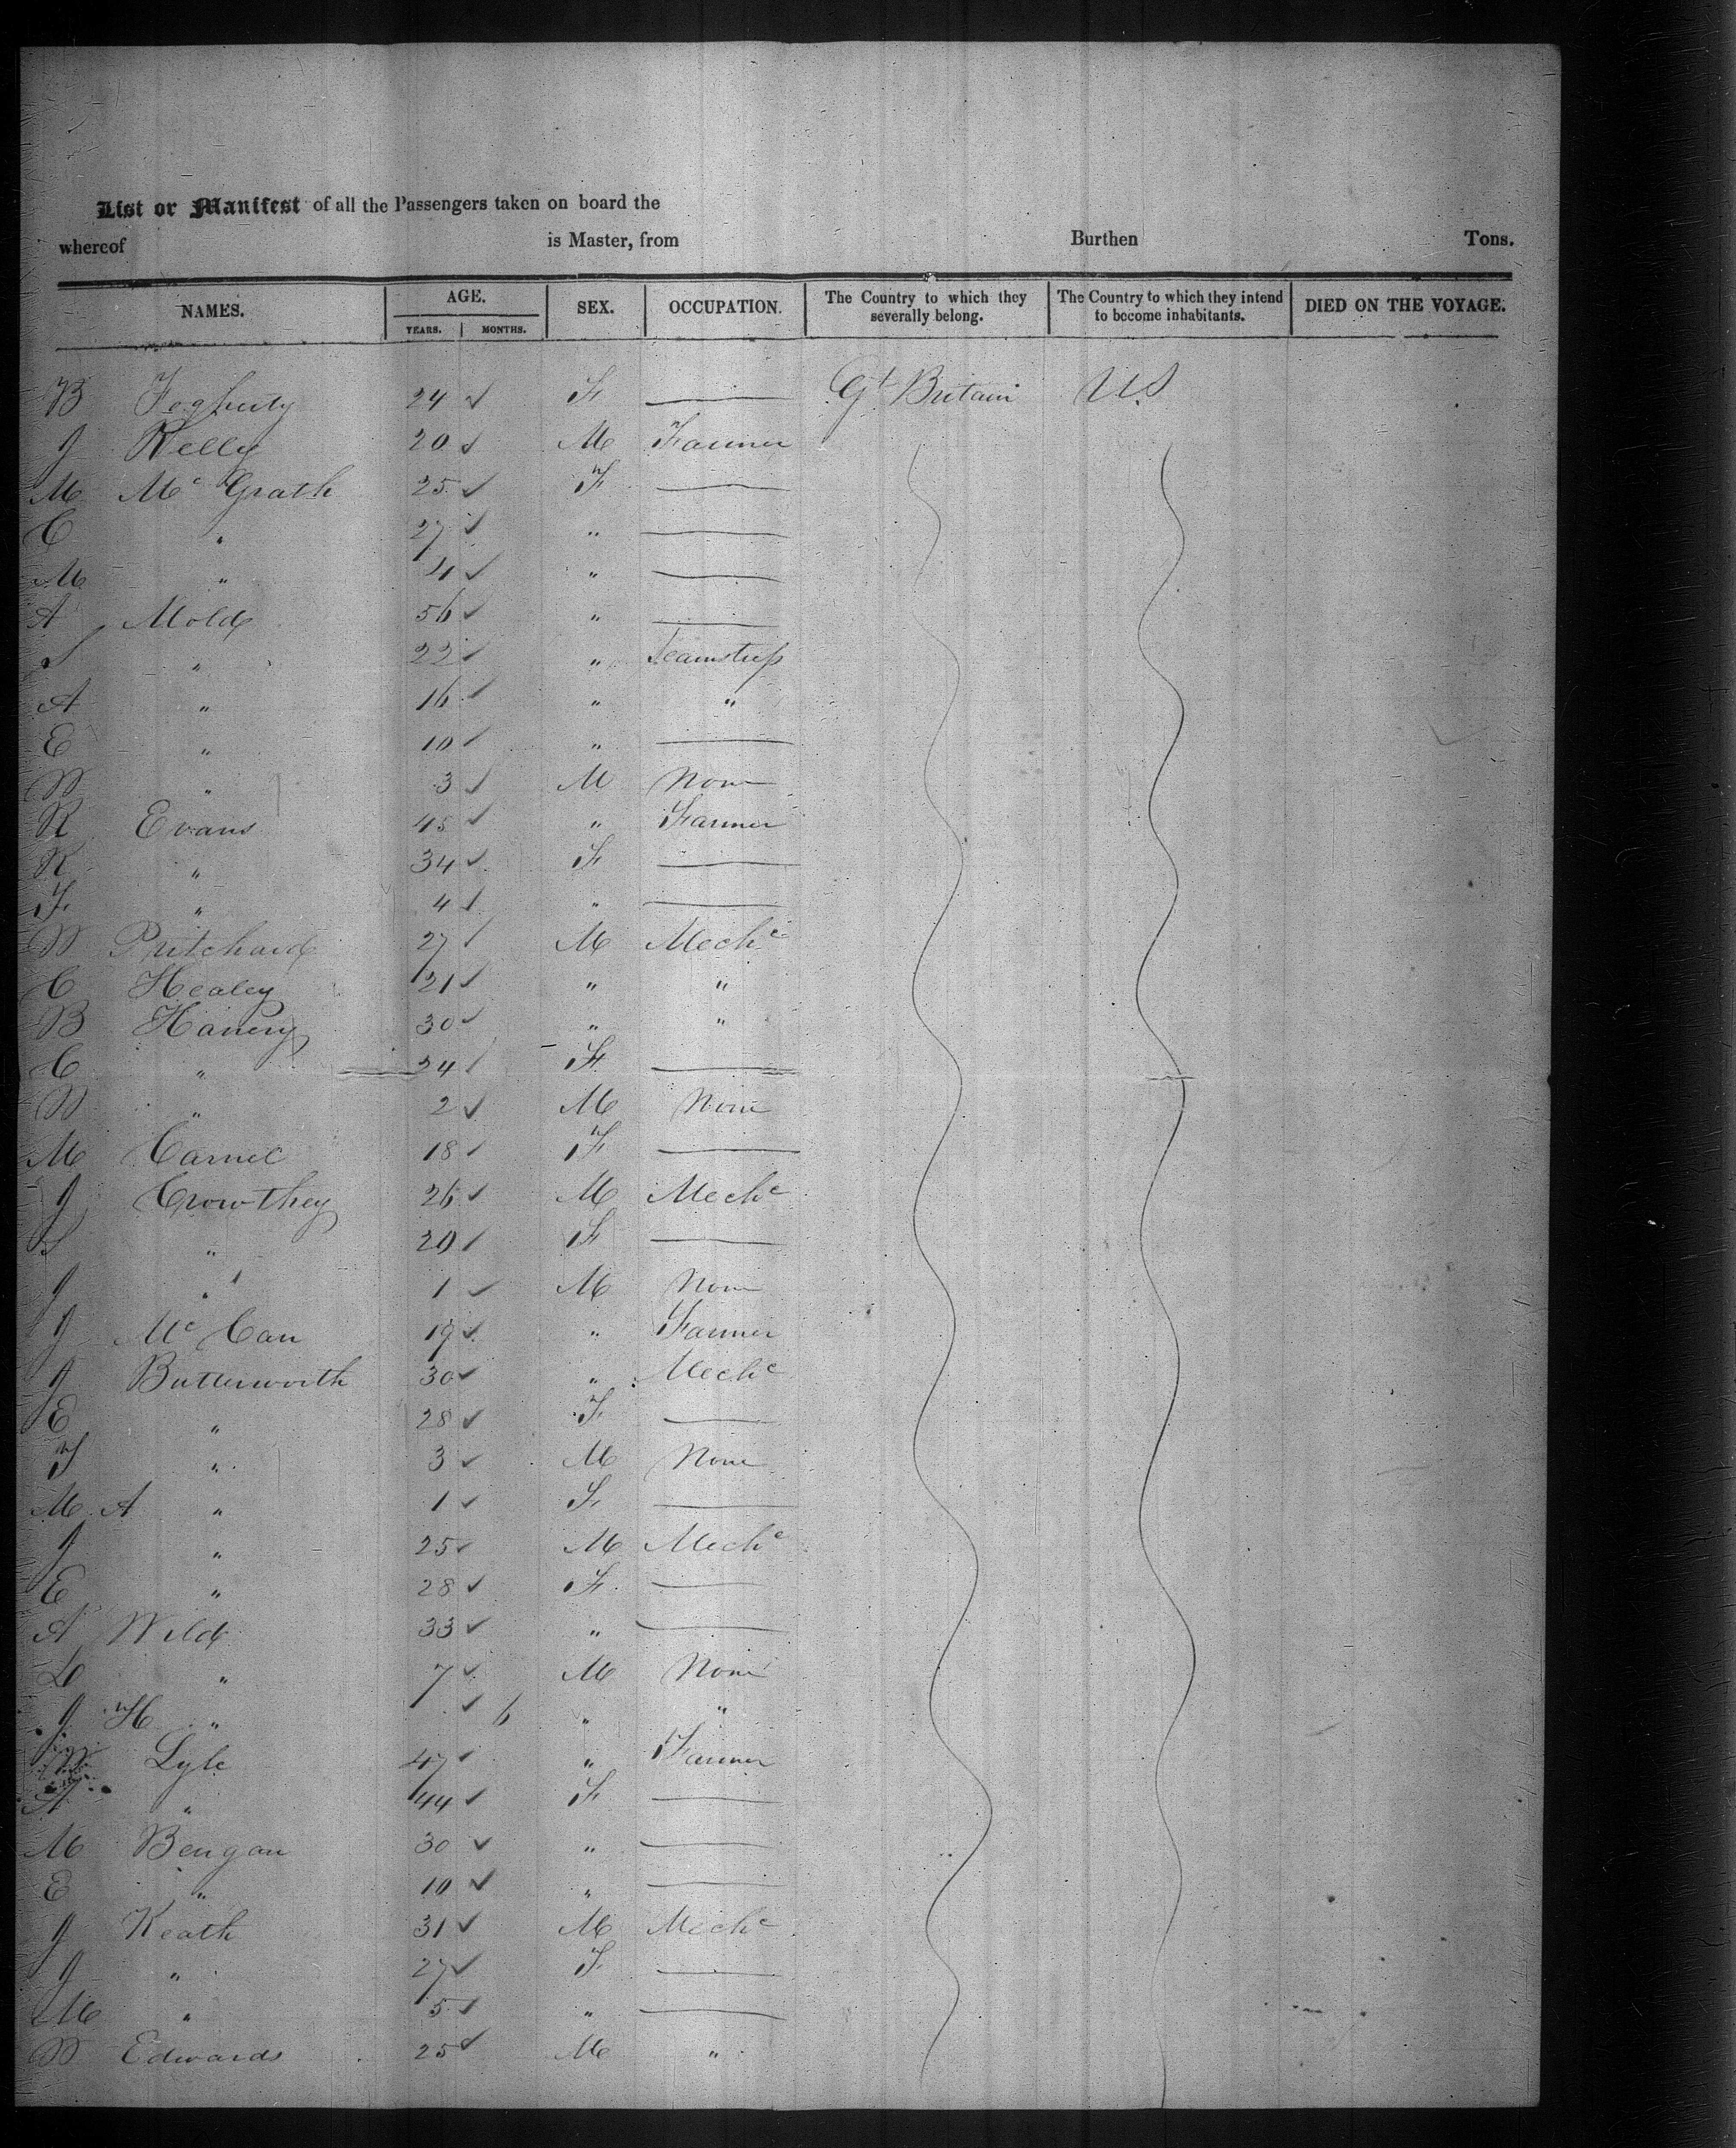 List or Manifest of all the Passengers taken on board the
whereof is Master, from Burthen Tons.
NAMES. AGE. SEX. OCCUPATION. The Country to which they severally belong. The Country to which they intend to become inhabitants. DIED ON THE VOYAGE.
YEARS. MONTHS.
B Fegherty 24 ✓ F — Gt Britain U.S
J Kelly 20 ✓ M Farmer
M Mc Grath 25 ✓ F —
C " 27 ✓ " —
M " 4 ✓ " —
A Mold 56 ✓ " —
S " 22 ✓ " Seamstress
A " 16 ✓ " "
E " 10 ✓ " —
W " 3 ✓ M None
R Evans 45 ✓ " Farmer
K " 34 ✓ F —
F " 4 ✓ " —
W Pritchard 27 ✓ M Mechc
C Healey 21 ✓ " "
B Haney 30 ✓ " "
C " 24 ✓ F —
W " 2 ✓ M None
M Carnel 18 ✓ F —
J Crowthey 26 ✓ M Mechc
S " 20 ✓ F —
J " 1 ✓ M None
J Mc Can 19 ✓ " Farmer
J Butterworth 30 ✓ " Mechc
E " 28 ✓ F —
T " 3 ✓ M None
M A " 1 ✓ F —
J " 25 ✓ M Mechc
E " 28 ✓ F —
A Wild 33 ✓ " —
D " 7 ✓ M None
J H " ✓ 6 " "
W Lyle 47 ✓ " Farmer
A " 44 ✓ F —
M Bengan 30 ✓ " —
E " 10 ✓ " —
J Keath 31 ✓ M Mechc
J " 27 ✓ F —
M " 5 ✓ " —
W Edwards 25 ✓ M "